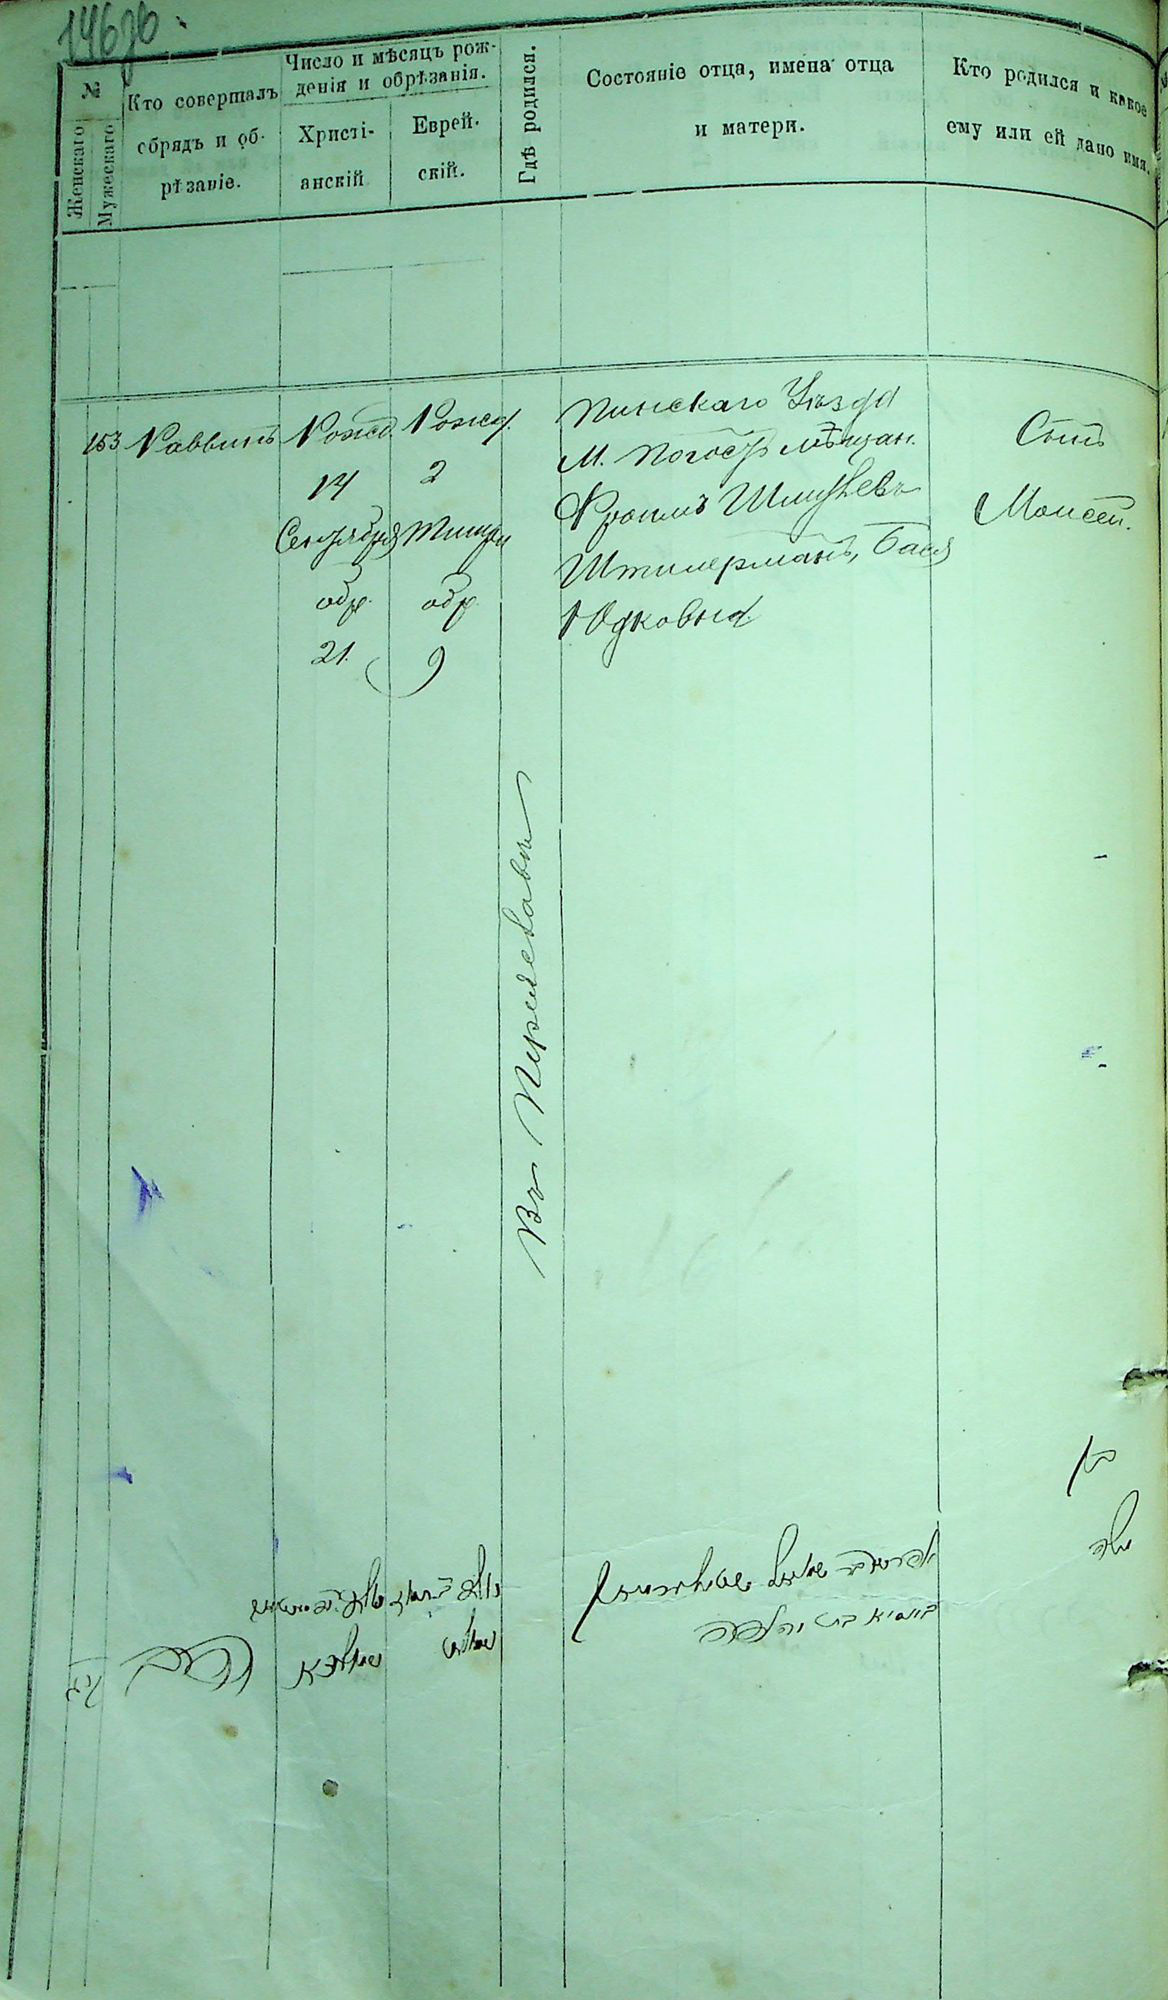 146об
№
Женскаго
Мужескаго
Кто совершалъ
обрядъ и об-
рѣзаніе.
Число и мѣсяцъ рож-
денія и обрѣзанія.
Христі-
анскій
Еврей-
скій.
Гдѣ родился.
Состояніе отца, имена отца
и матери.
Кто родился и какое
ему или ей дано имя.
153
Раввинъ
Рожд.
14
Сентября
обр.
21.
Рожд.
2
Тишри
обр.
9
Въ Переяславѣ
Пинскаго Уѣзда
М. Погостъ мѣщан.
Фроимъ Шмулевъ
Штилерманъ, Бася
Юдковна
Сынъ
Моисей.
בן
משה